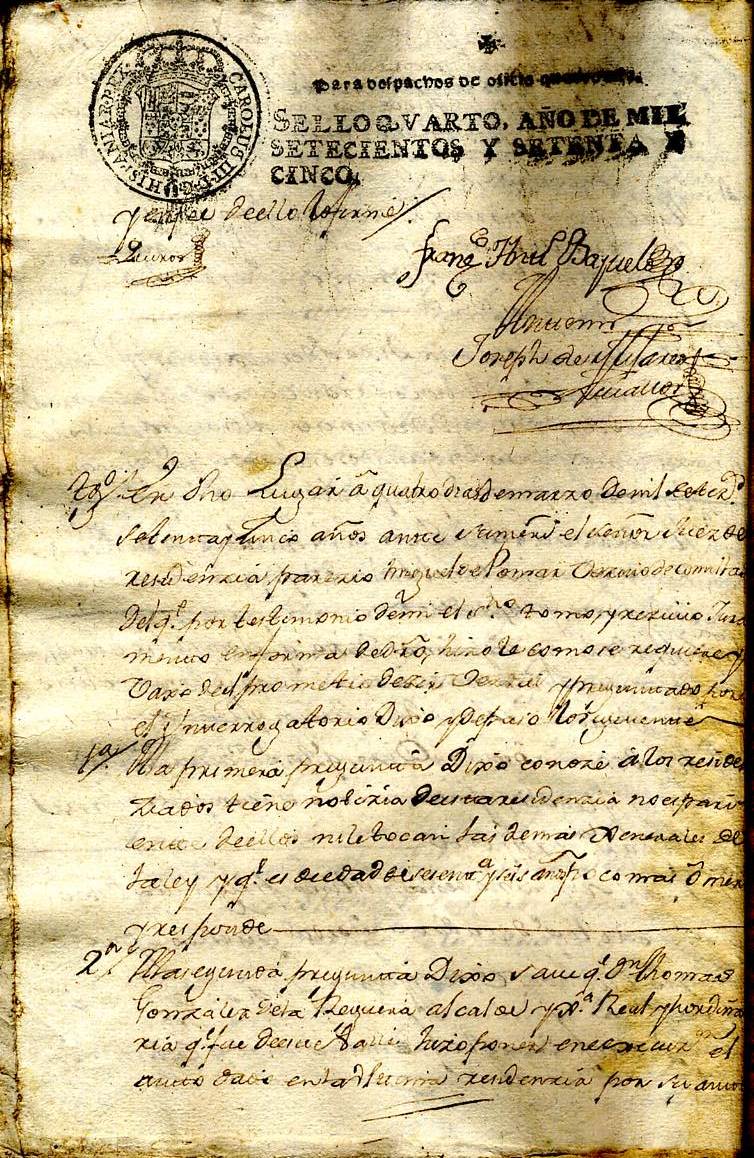 CAROLUS III D G HISPANIAR REX
Para despachos de oficio
SELLO QVARTO, AÑO DE MIL
SETECIENTOS Y SETENTA Y
CINCO.
y en fee de ello lo firmé
Quiros
Franco
Antemi
Joseph de
tgo. En dho Lugar á quatro dias de marzo de mil setezs.
setenta y Cinco años ante su mrd el señor Juez de
residenzia parezio Miguel de Pomar Vezino de
del q.e por testimonio de mi el sno. tomo, y rezivio Jura
mento en forma de dro, hizole como se requiere y
vaxo de el prometio dezir Verdad y preguntado por
el Ynterrogatorio Dixo y depuso lo siguiente
1.a A la primera pregunta Dixo conoze á los reside
ziados tiene notizia de esta residenzia no es pari
ente de ellos ni le tocan las demas Generales de
la ley y q.e es de edad de sesenta y seis años poco mas ó men
y responde
2.a A la segunda pregunta Dixo save q.e Dn Thomas
Gonzalez de la Reguera alcalde y Real y hordina
ria q.e fue de este Valle hizo poner en execuzon el
auto dado en la ultima residenzia por su